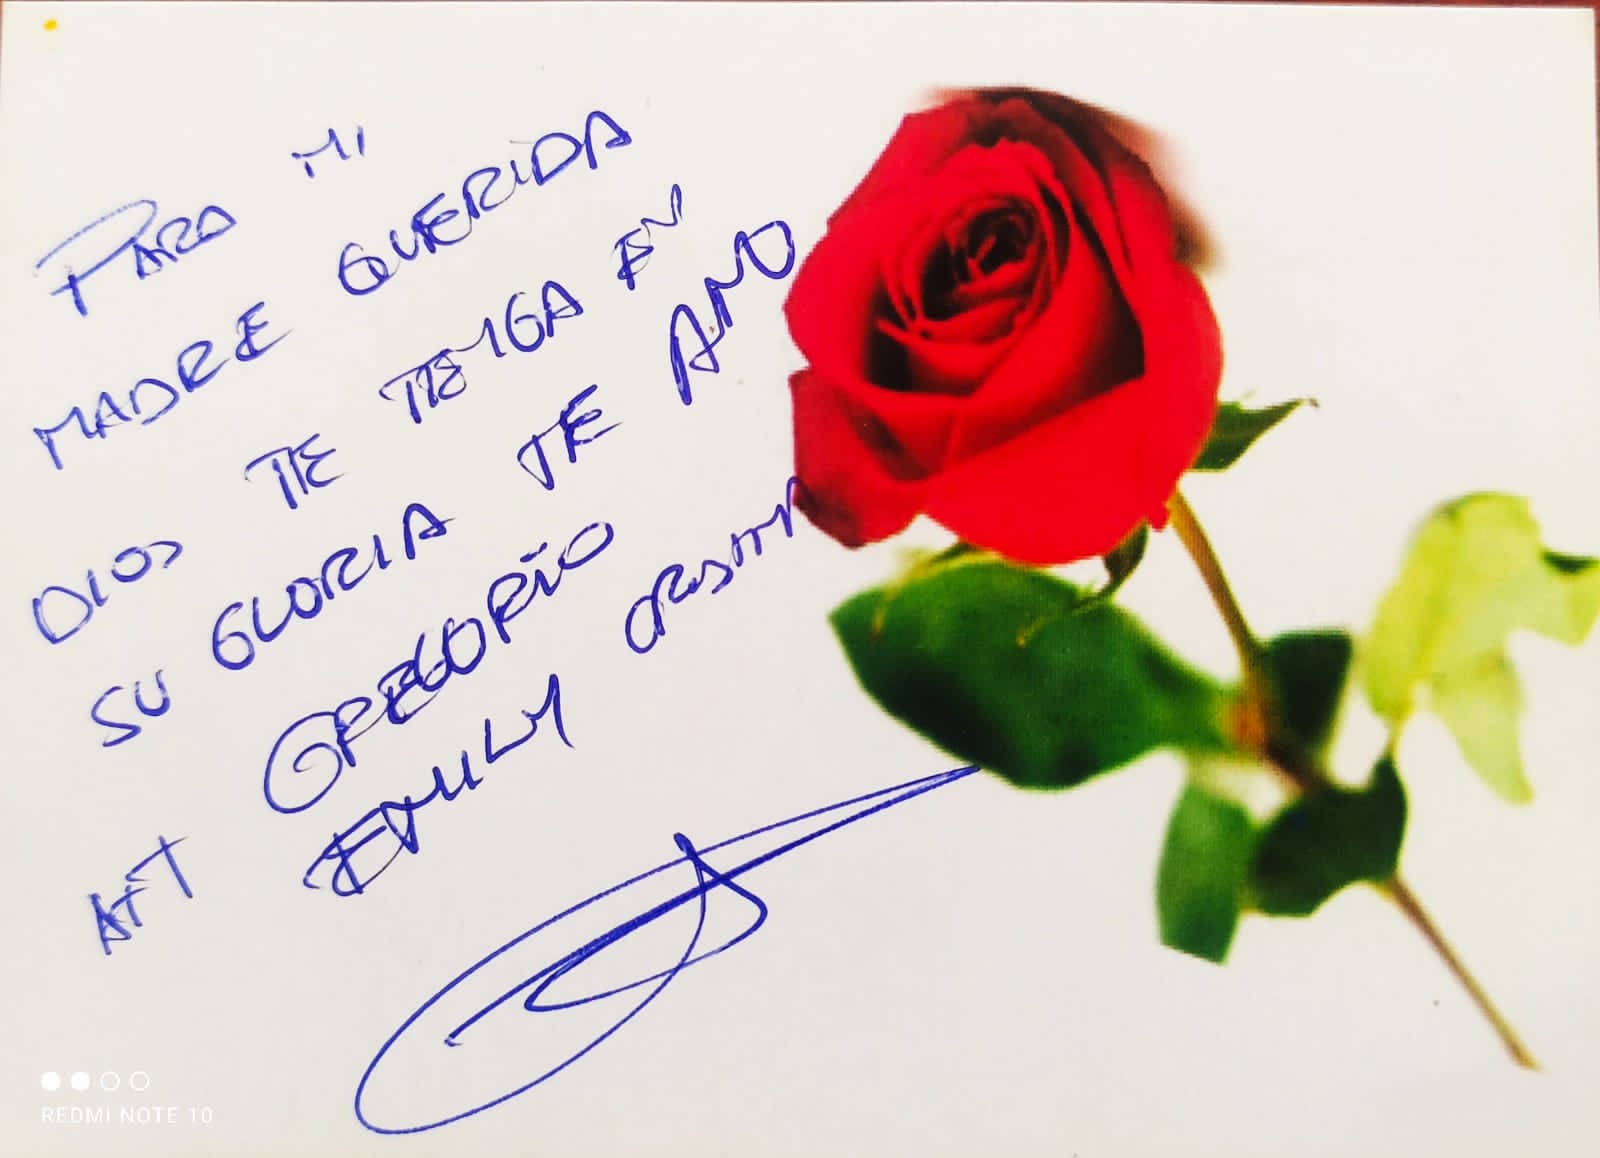 PARA MI
MADRE QUERIDA
DIOS TE TENGA EN
SU GLORIA TE AMO
ATT GREGORIO
EMILY
REDMI NOTE 10